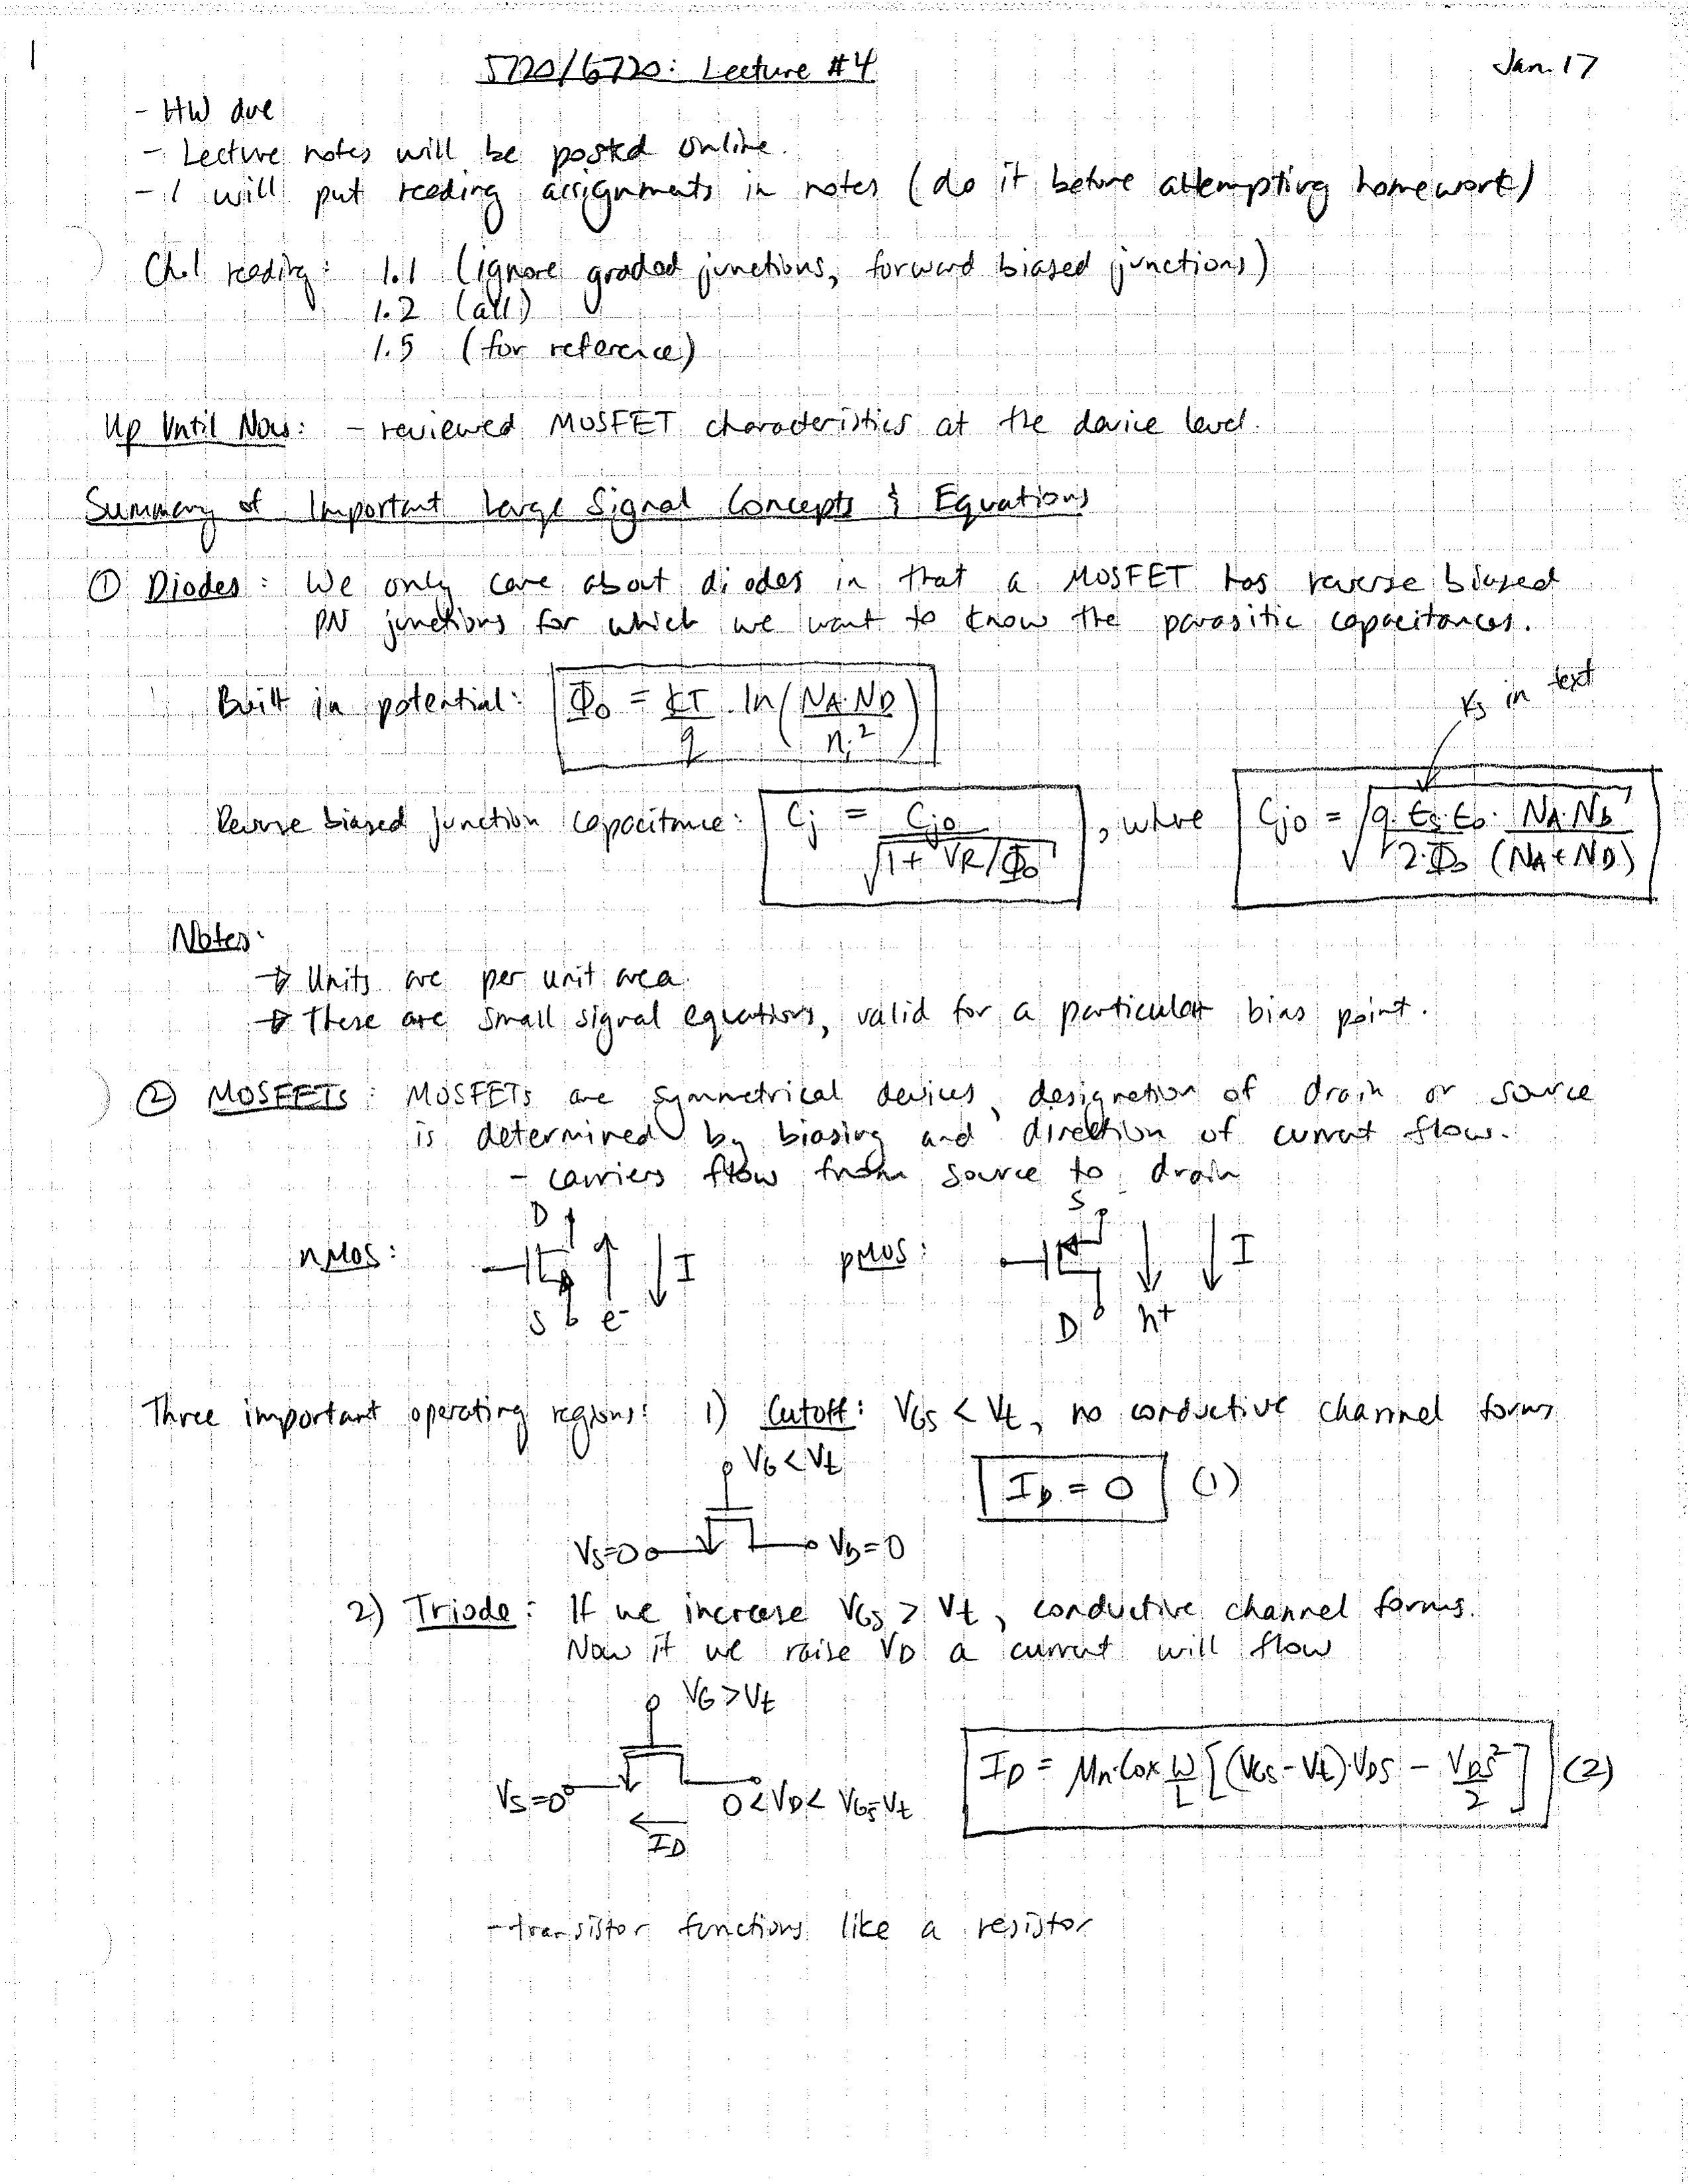 1
5720/6720: Lecture #4
Jan. 17
- HW due
- Lecture notes will be posted online.
- I will put reading assignments in notes (do it before attempting homework)
Ch.1 reading: 1.1 (ignore graded junctions, forward biased junctions)
1.2 (all)
1.5 (for reference)
Up Until Now: - reviewed MOSFET characteristics at the device level.
Summary of Important Large Signal Concepts & Equations
① Diodes: We only care about diodes in that a MOSFET has reverse biased
PN junctions for which we want to know the parasitic capacitances.
Built in potential: Φ₀ = kT/q ln(NA·ND/ni²)
Ks in text
Reverse biased junction capacitance: Cj = Cjo/√(1 + VR/Φ₀), where Cjo = √(q·εs·ε₀/(2·Φ₀) · NA·ND/(NA+ND))
Notes:
→ Units are per unit area.
→ These are small signal equations, valid for a particular bias point.
② MOSFETs: MOSFETs are symmetrical devices, designation of drain or source
is determined by biasing and direction of current flow.
- carriers flow from source to drain
nMOS: D S e⁻ I
pMOS: S D h⁺ I
Three important operating regions: 1) Cutoff: VGS < Vt, no conductive channel forms
VG < Vt
ID = 0 (1)
VS=0 VD=0
2) Triode: If we increase VGS > Vt, conductive channel forms.
Now if we raise VD a current will flow
VG > Vt
ID = μn·Cox W/L [(VGS - Vt)·VDS - VDS²/2] (2)
VS=0 0 < VD < VGS-Vt
ID
- transistor functions like a resistor